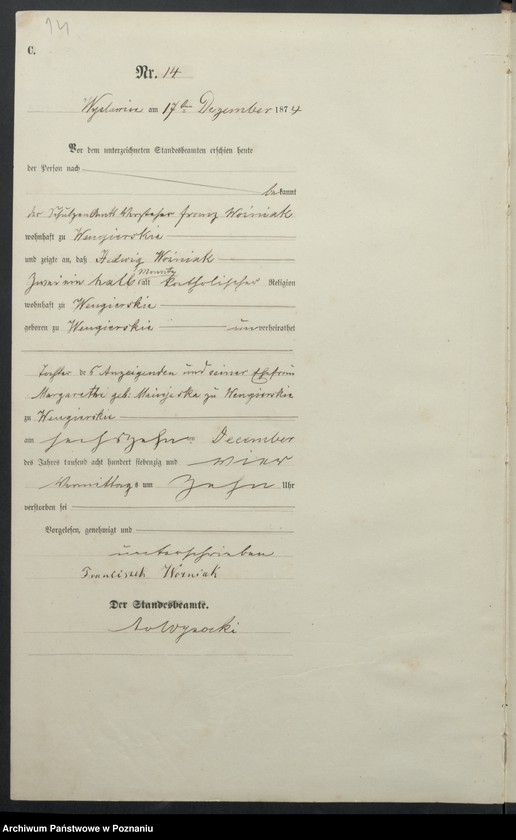 14
C.
Nr. 14
Wyslawice am 17ten Dezember 1874
Vor dem unterzeichneten Standesbeamten erschien heute
der Person nach
bekannt
der Schulzenamts Verwalter Franz Woźniak
wohnhaft zu Wengierskie
und zeigte an, daß Hedwig Woźniak
Zwei ein halb Monate alt katholischer Religion
wohnhaft zu Wengierskie
geboren zu Wengierskie unverheirathet
Tochter des Anzeigenden und seiner Ehefrau
Margarethe geb. zu Wengierskie
zu Wengierskie
am sechszehn December
des Jahres tausend acht hundert siebenzig und vier
Vormittags um Zehn Uhr
verstorben sei
Vorgelesen, genehmigt und
unterschrieben
Franciszek Woźniak
Der Standesbeamte.
Wysocki
Archiwum Państwowe w Poznaniu